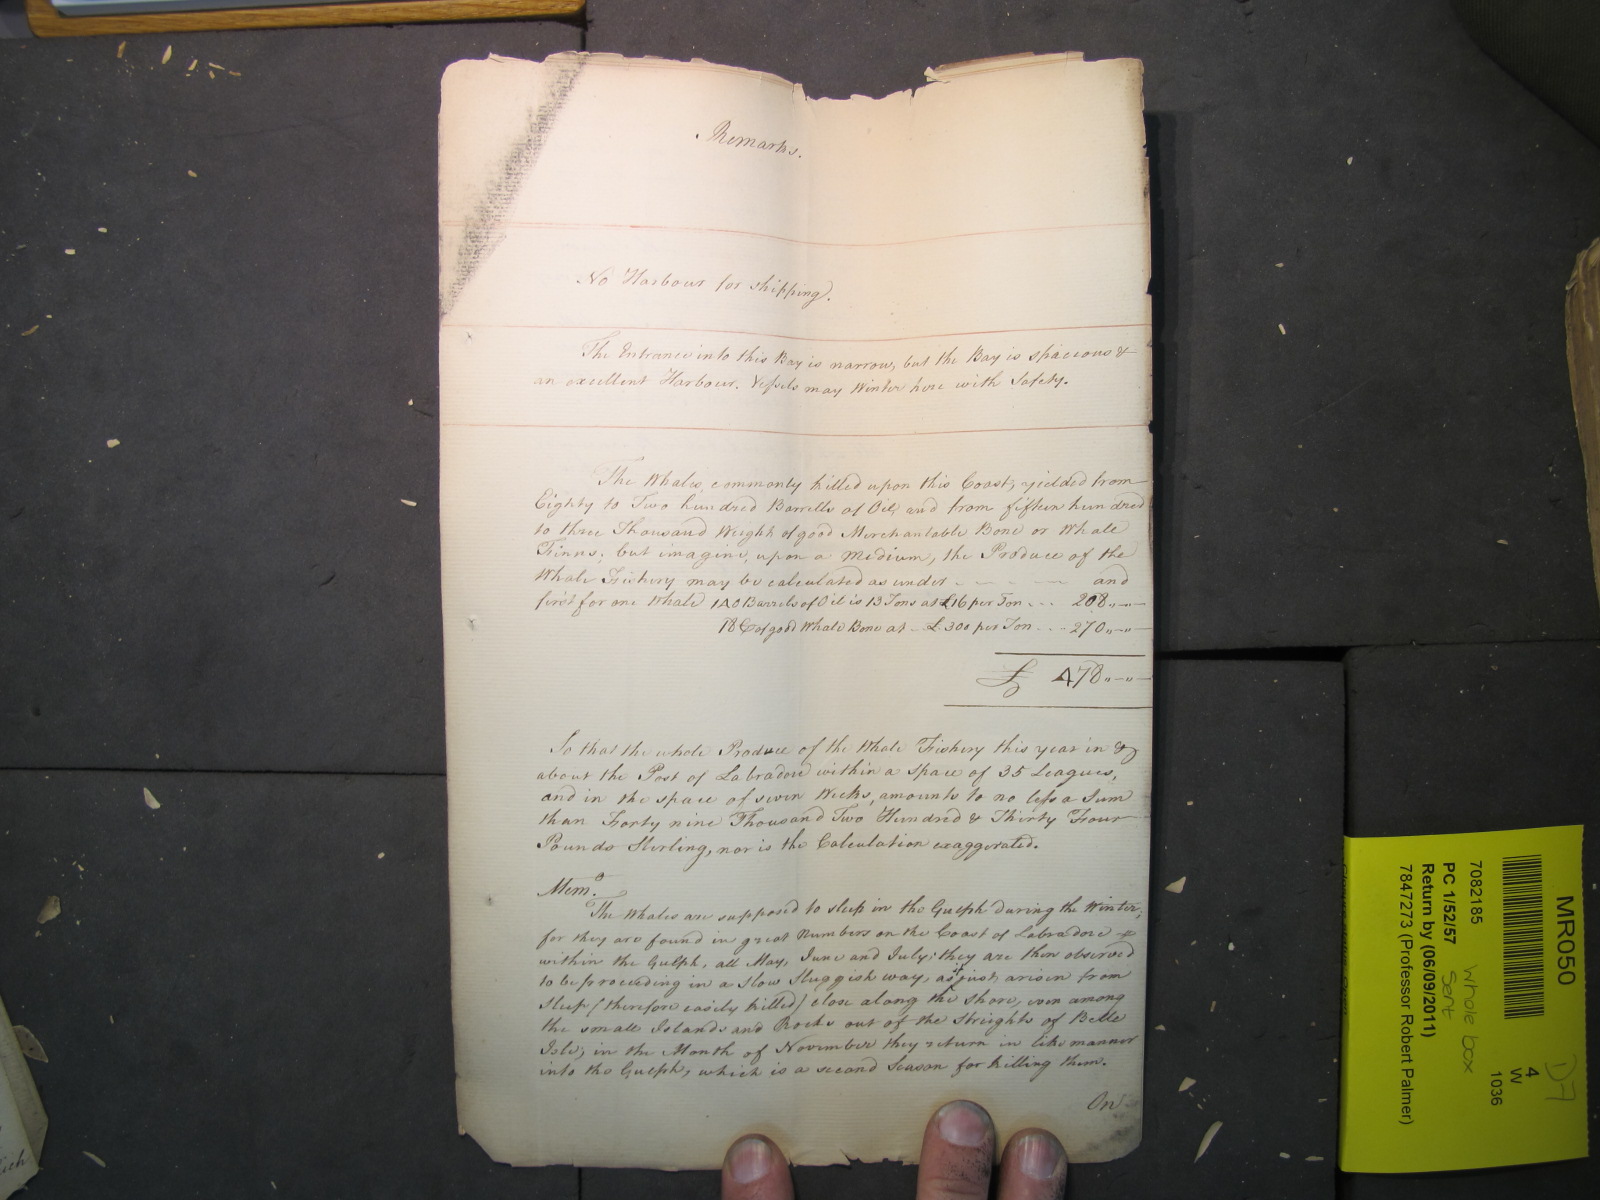 Remarks.
No Harbour for shipping.
The Entrance into this Bay is narrow, but the Bay is spacious &
an excellent Harbour. Vessels may Winter here with Safety.
The Whales commonly killed upon this Coast, yielded from
Eighty to Two hundred Barrells of Oil, and from fifteen hundred
to three Thousand Weight of good Merchantable Bone or Whale
Finns; but imagine, upon a Medium, the Produce of the
Whale Fishery may be calculated as under - - - - and
first for one Whale 140 Barrels of Oil is 13 Tons at £16 per Ton ... 208"-"-
18 C of good Whale Bone at - £300 per Ton ... 270"-"-
£ 478"-"-
So that the whole Produce of the Whale Fishery this year in &
about the Post of Labradore within a space of 35 Leagues,
and in the space of seven Weeks, amounts to no less a Sum
than Forty nine Thousand Two Hundred & Thirty Four
Pounds Sterling, nor is the Calculation exaggerated.
Memo.
The Whales are supposed to sleep in the Gulph during the Winter,
for they are found in great Numbers on the Coast of Labradore &
within the Gulph, all May, June and July; they are then observed
to be proceeding in a slow sluggish way, as if just arisen from
sleep (therefore easily killed) close along the shore, even among
the small Islands and Rocks out of the Streights of Belle
Isle; in the Month of November they return in like manner
into the Gulph, which is a second Season for killing them.
On
MR050
7082185
PC 1/52/57
Return by (06/09/2011)
7847273 (Professor Robert Palmer)
whole box
sent
4
W
1036
D7